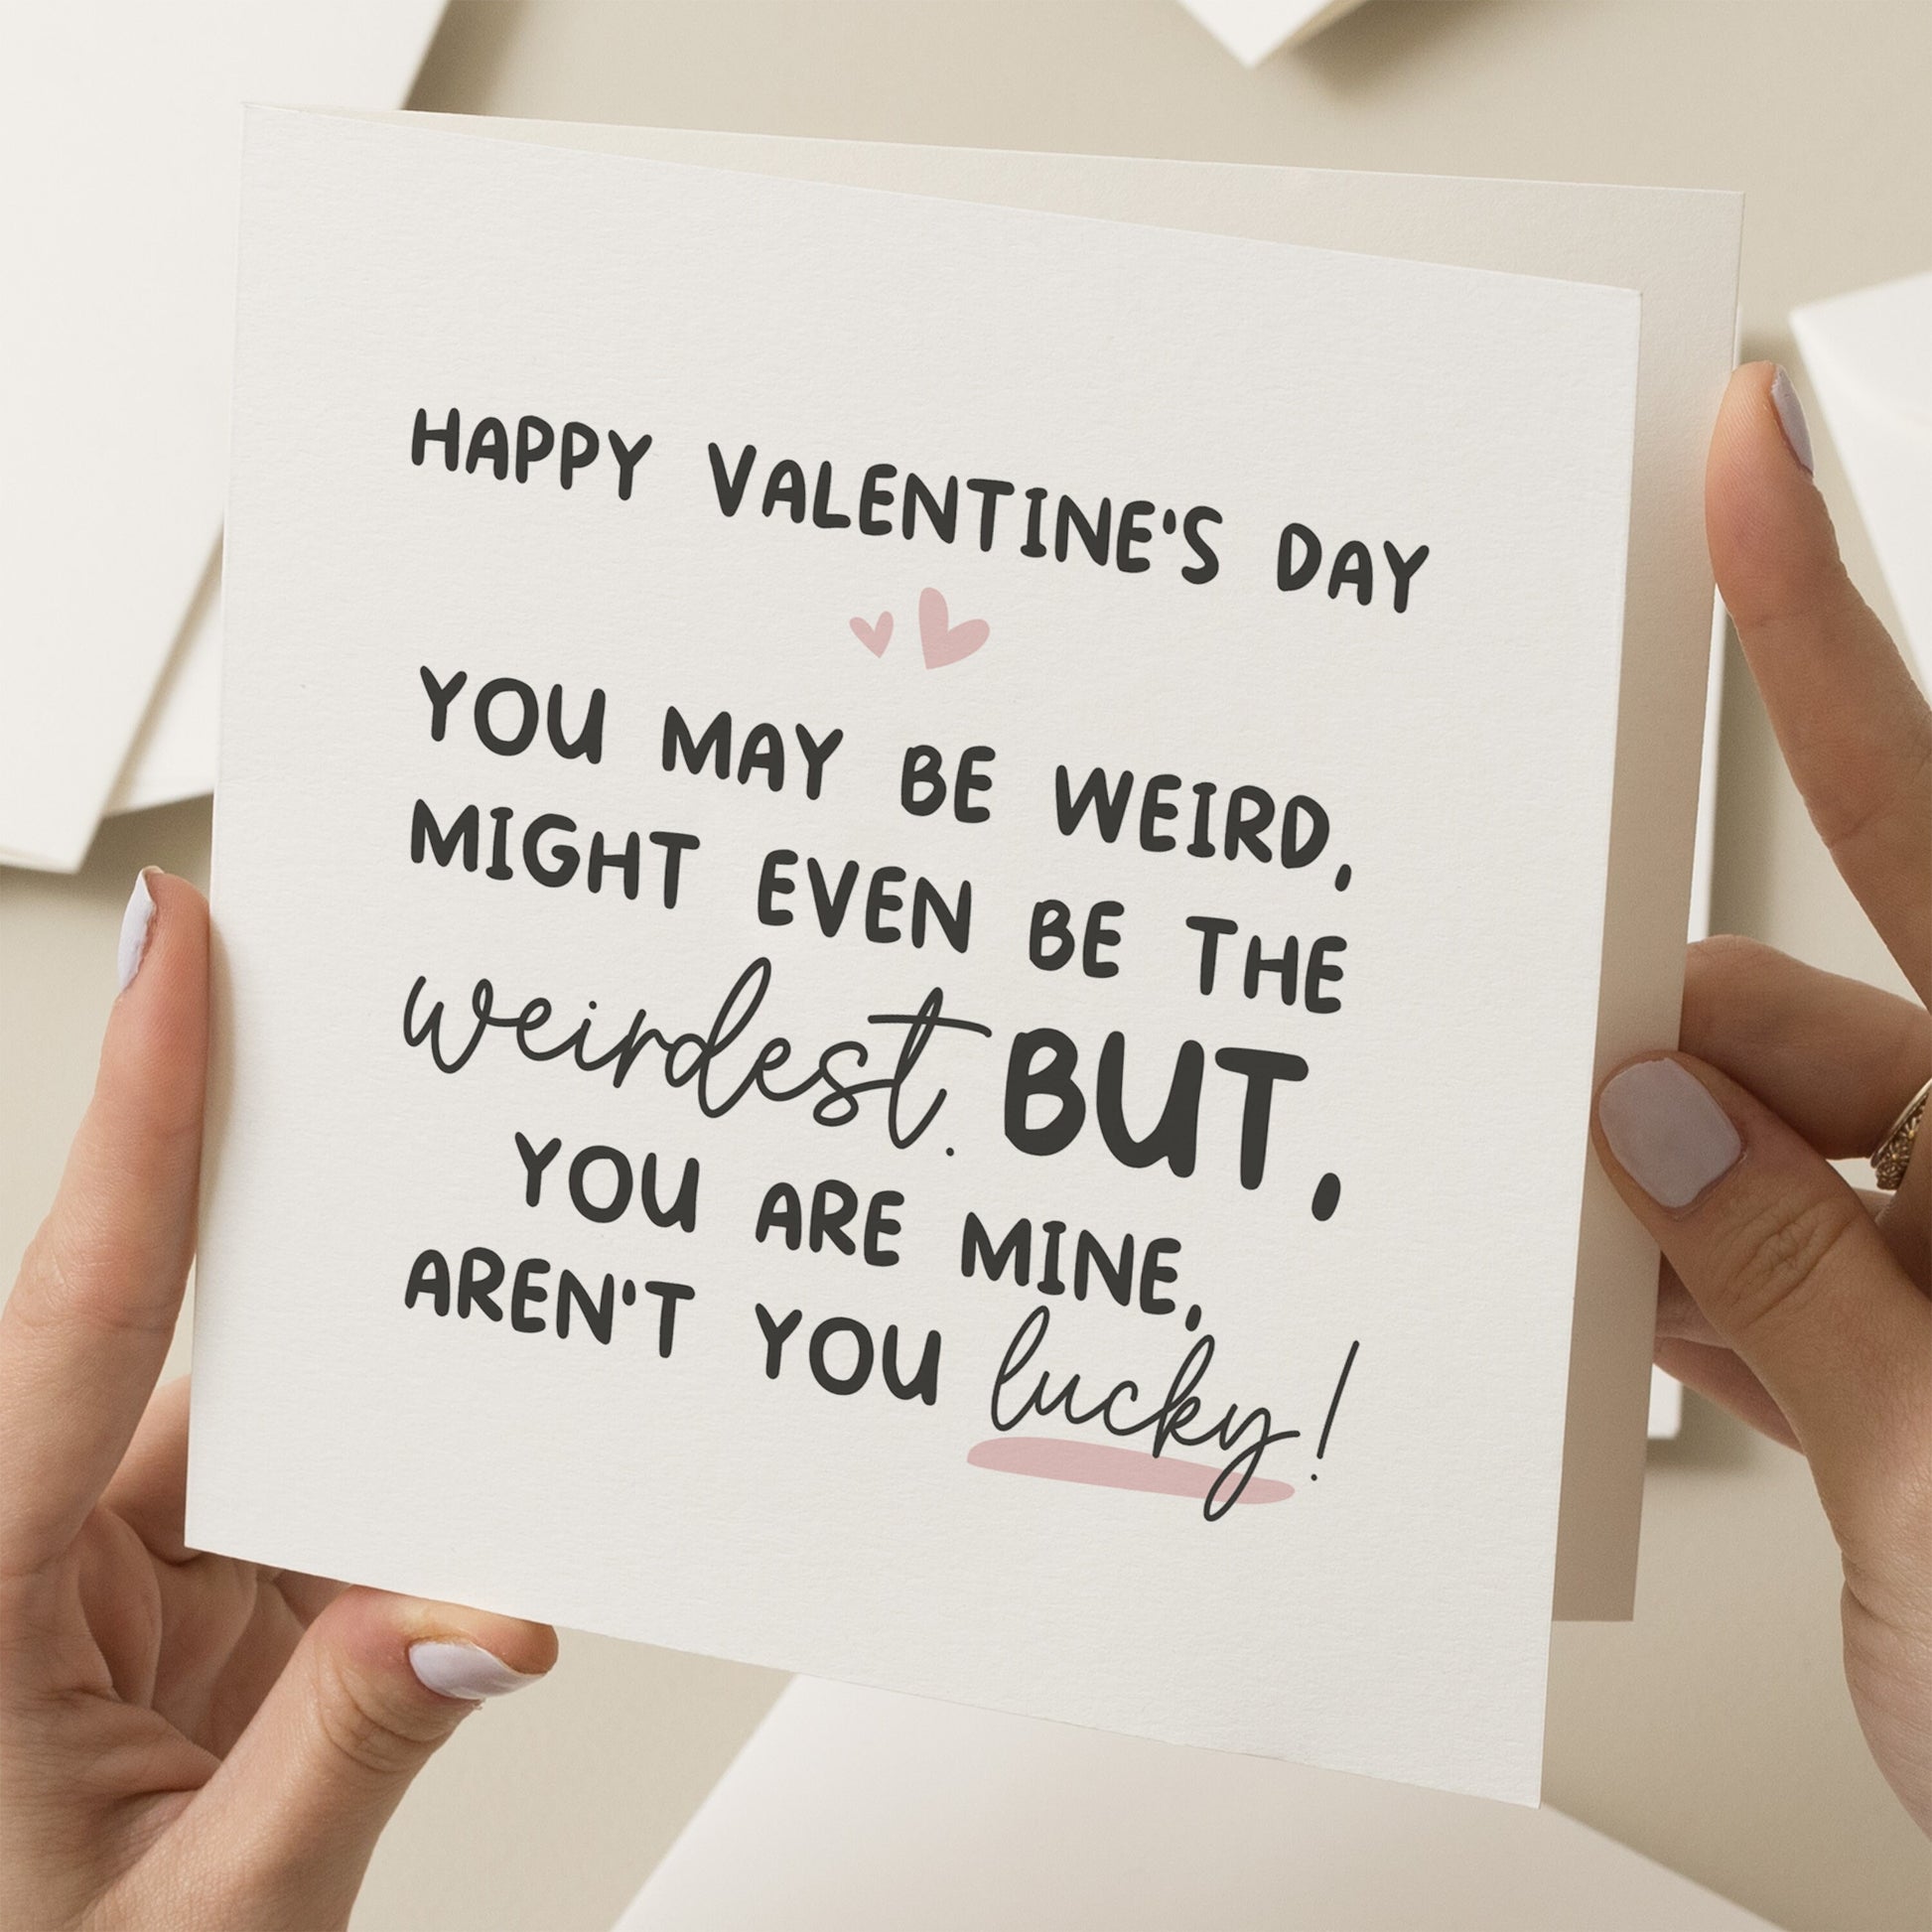 HAPPY VALENTINE'S DAY
YOU MAY BE WEIRD,
MIGHT EVEN BE THE
weirdest. BUT,
YOU ARE MINE,
AREN'T YOU lucky!